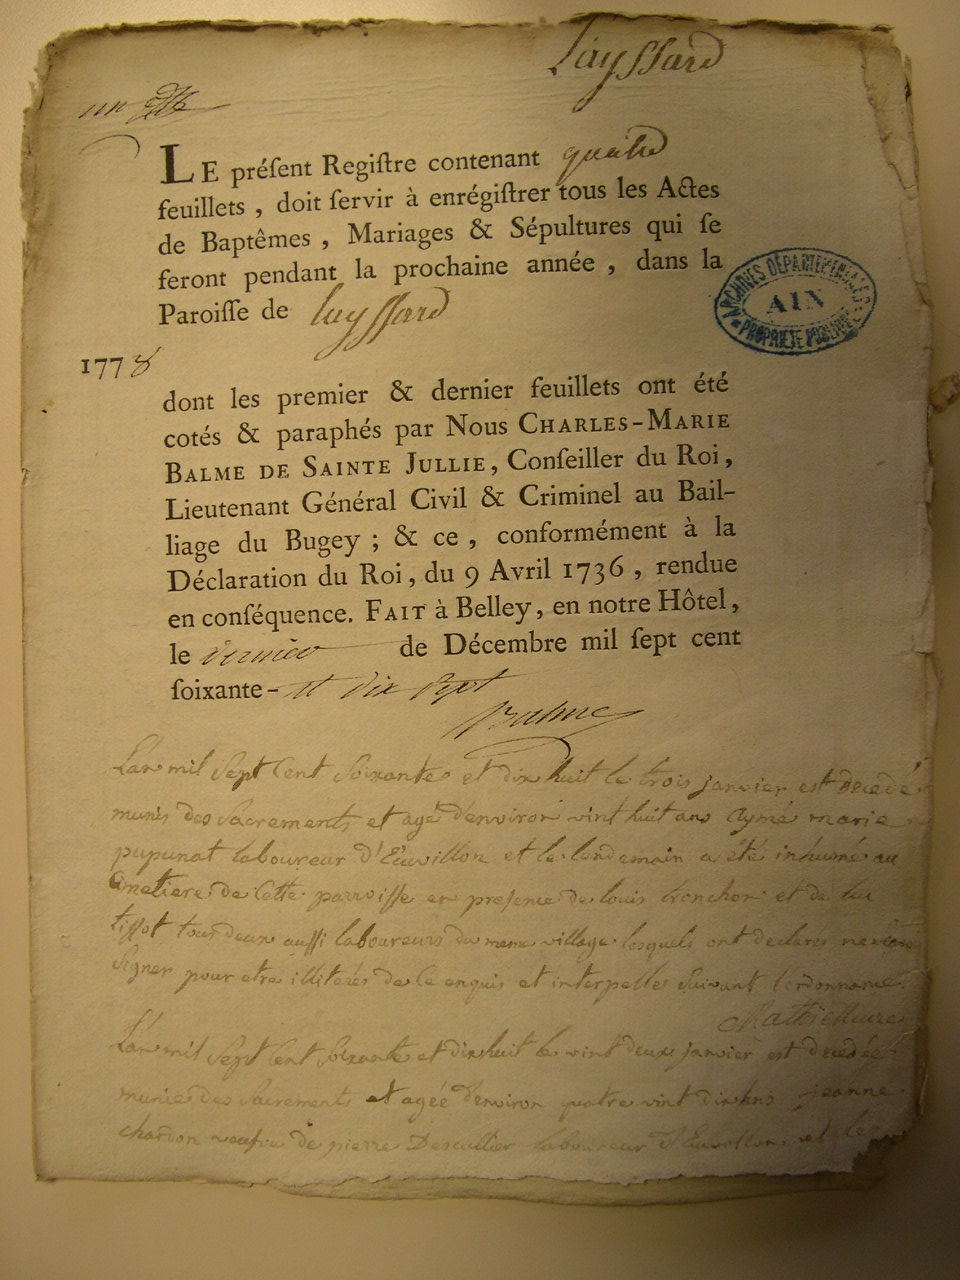 Layssard
un
LE préſent Regiſtre contenant quatre
feuillets , doit ſervir à enrégiſtrer tous les Actes
de Baptêmes , Mariages & Sépultures qui ſe
feront pendant la prochaine année , dans la
Paroiſſe de layssard
ARCHIVES DÉPARTEMENTALES
AIN
PROPRIÉTÉ PUBLIQUE
1778
dont les premier & dernier feuillets ont été
cotés & paraphés par Nous CHARLES-MARIE
BALME DE SAINTE JULLIE, Conſeiller du Roi,
Lieutenant Général Civil & Criminel au Bail-
liage du Bugey ; & ce , conformément à la
Déclaration du Roi, du 9 Avril 1736 , rendue
en conſéquence. FAIT à Belley, en notre Hôtel,
le de Décembre mil ſept cent
ſoixante- et dix sept
Balme
L'an mil sept cent soixante et dix huit le trois janvier est decedé
munis des sacrements et agé d'environ vint huit ans Aymé marie
pupunat laboureur d' et le lendemain a été inhumé au
Cimetiere de cette parroisse en presence de louis tronchon et de
tissot tous deux aussi laboureurs du meme village lesquels ont declaré
signer pour etre illiterés de ce enquis et interpellés suivant l'ordonnance.
L'an mil sept cent soixante et dix huit le vint deux janvier est decedée
munie des sacrements et agée d'environ quatre vint dix ans jeanne
chardon veufve de pierre laboureur et le